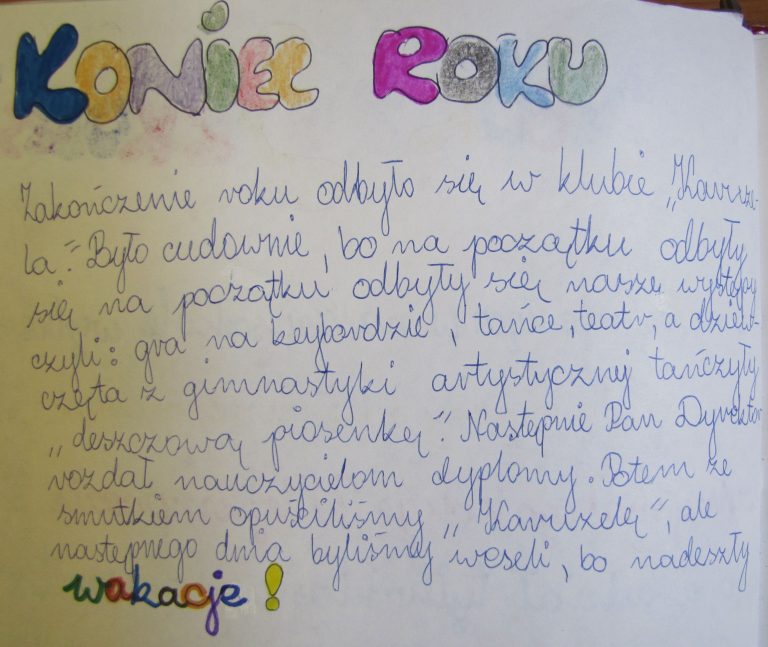 KONIEC ROKU
Zakończenie roku odbyło się w klubie „Karuze-
la". Było cudownie, bo na początku odbyły
się na początku odbyły się nasze występy
czyli: gra na keybordzie, tańce, teatr, a dziew-
częta z gimnastyki artystycznej tańczyły
„deszczową piosenkę". Następnie Pan Dyrektor
rozdał nauczycielom dyplomy. Potem ze
smutkiem opuściliśmy „Karuzelę", ale
następnego dnia byliśmy weseli, bo nadeszły
wakacje!